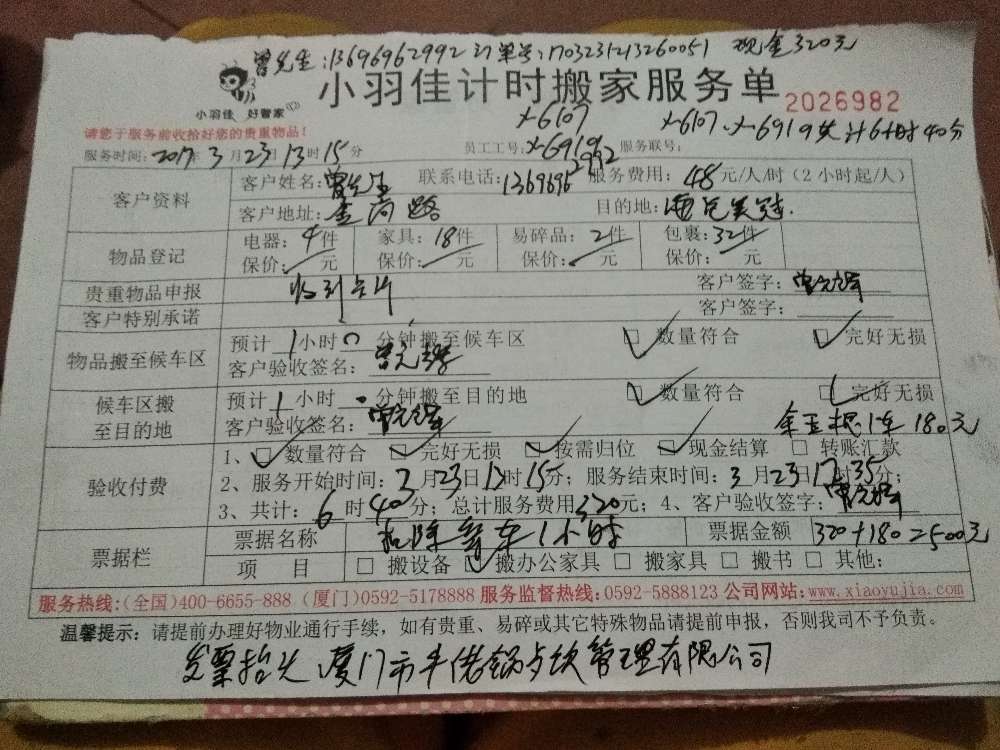 曾先生:13696962992 订单号:1703231213260051 现金320元
小羽佳 好管家
小羽佳计时搬家服务单
2026982
X-6107
X-6107、X-6919共计6小时40分
请您于服务前收拾好您的贵重物品!
服务时间:2017年3月23日13时15分 员工工号:X-6919 服务联号:
客户资料 客户姓名:曾先生 联系电话:13696962992 服务费用:48元/人/时(2小时起/人)
客户地址:金尚路 目的地:
物品登记 电器:4件 家具:18件 易碎品:2件 包裹:32件
保价: 元 保价: 元 保价: 元 保价: 元
贵重物品申报 收到卡片 客户签字:
客户特别承诺 客户签字:
物品搬至候车区 预计1小时0分钟搬至候车区 数量符合 完好无损
客户验收签名:
候车区搬至目的地 预计1小时 分钟搬至目的地 数量符合 完好无损
客户验收签名: 1车180元
验收付费 1、数量符合 完好无损 按需归位 现金结算 转账汇款
2、服务开始时间:3月23日13时15分;服务结束时间:3月23日17时35分;
3、共计:6时40分;总计服务费用320元;4、客户验收签字:
票据栏 票据名称 扣除等车1小时 票据金额 320+180=500元
项 目 搬设备 搬办公家具 搬家具 搬书 其他:
服务热线:(全国)400-6655-888 (厦门)0592-5178888 服务监督热线:0592-5888123 公司网站:www.xiaoyujia.com
温馨提示:请提前办理好物业通行手续,如有贵重、易碎或其它特殊物品请提前申报,否则我司不予负责。
发票抬头:厦门市牛佬锅餐饮管理有限公司